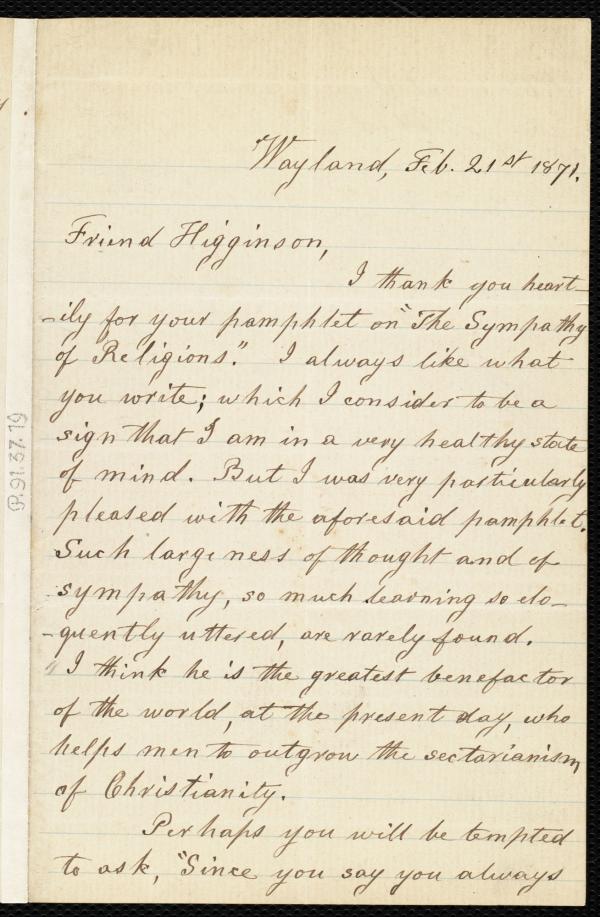 Wayland, Feb. 21st 1871.
Friend Higginson,
I thank you heart-
-ily for your pamphlet on "The Sympathy
of Religions." I always like what
you write; which I consider to be a
sign that I am in a very healthy state
of mind. But I was very particularly
pleased with the aforesaid pamphlet.
Such largeness of thought and of
sympathy, so much learning so elo-
-quently uttered, are rarely found.
I think he is the greatest benefactor
of the world, at the present day, who
helps men to outgrow the sectarianism
of Christianity.
Perhaps you will be tempted
to ask, "Since you say you always
P.91.37.19